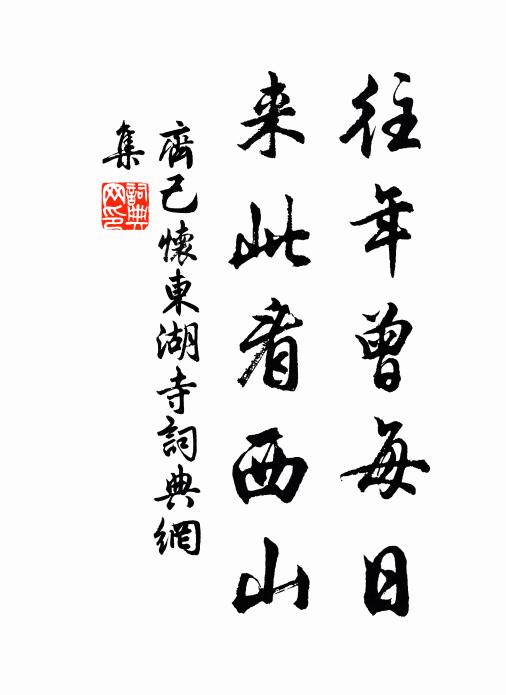 往年曾每日
来此看西山
齊己懷東湖寺詞典網
集
詞典
网印